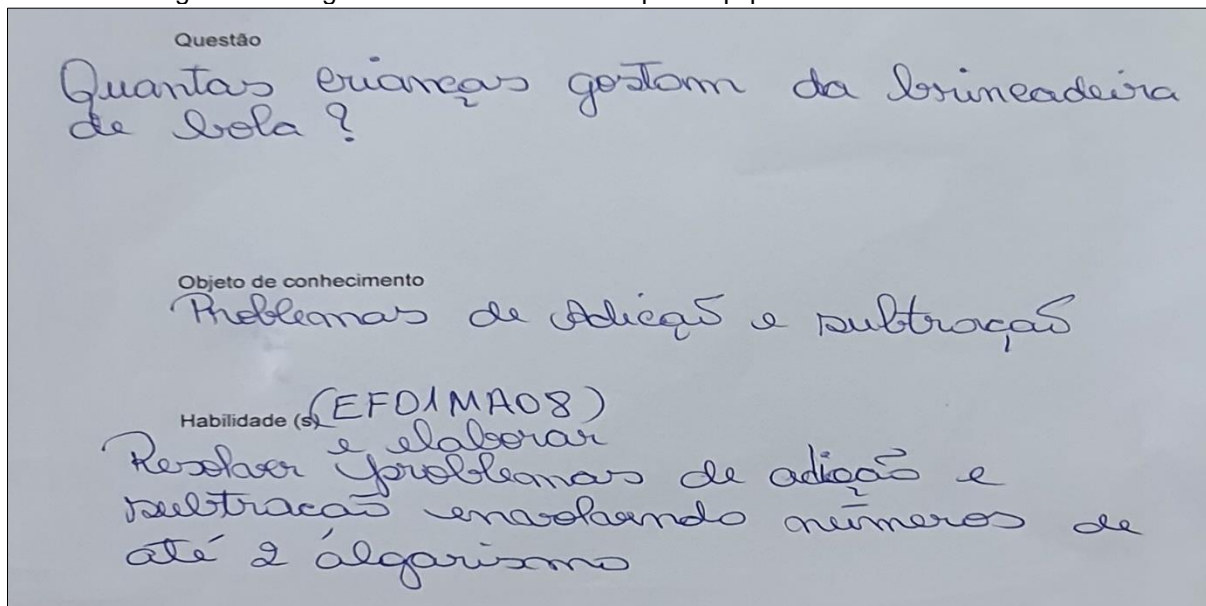 Questão
Quantas crianças gostam da brincadeira
de bola ?
Objeto de conhecimento
Problemas de Adicão e subtração
Habilidade (s) (EF01MA08)
e elaborar
Resolver problemas de adição e
subtracão envolvendo números de
até 2 álgarismo